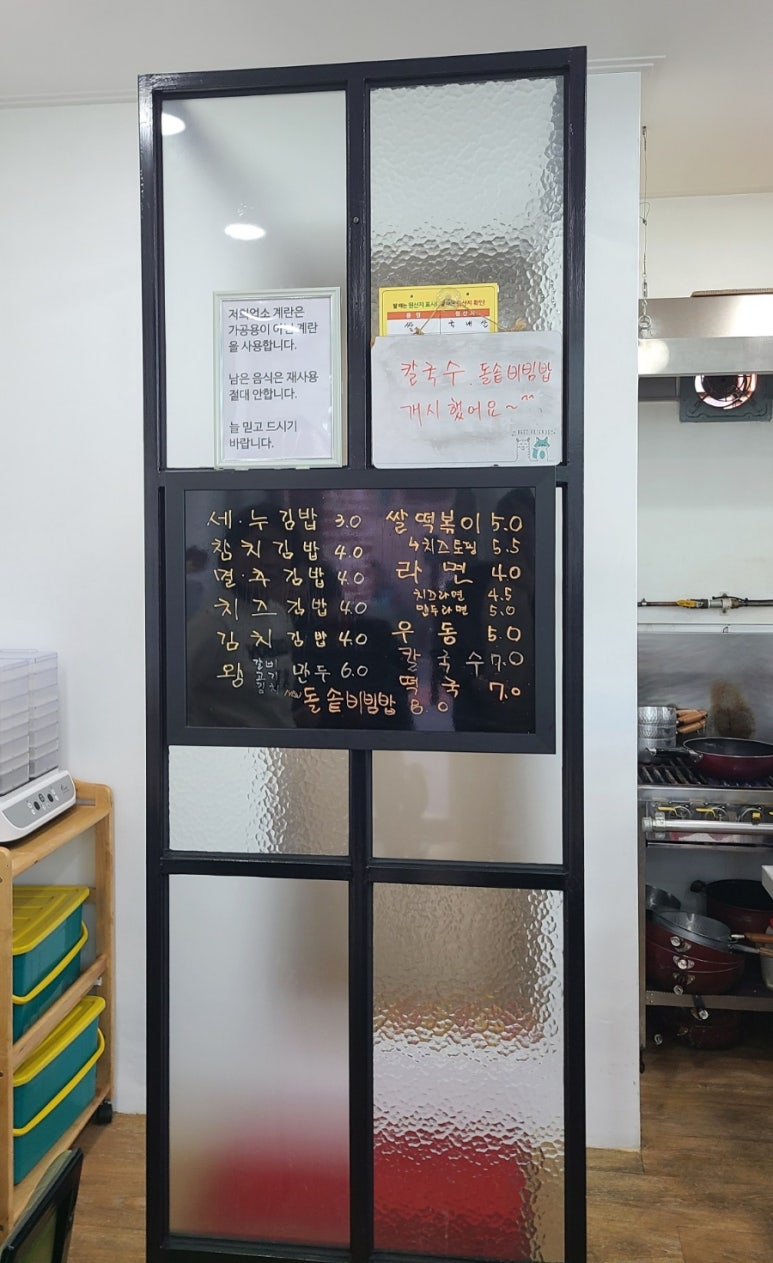 저희업소 계란은
가공용이 아닌 계란
을 사용합니다.
남은 음식은 재사용
절대 안합니다.
늘 믿고 드시기
바랍니다.
쌀 국내산
칼국수. 돌솥비빔밥
개시했어요~^^
세·누김밥 3.0
참치김밥 4.0
멸·추김밥 4.0
치즈김밥 4.0
김치김밥 4.0
왕 갈비 고기 김치 만두 6.0
쌀떡볶이 5.0
↳치즈토핑 5.5
라면 4.0
치즈라면 4.5
만두라면 5.0
우동 5.0
칼국수 7.0
떡국 7.0
new 돌솥비빔밥 8.0